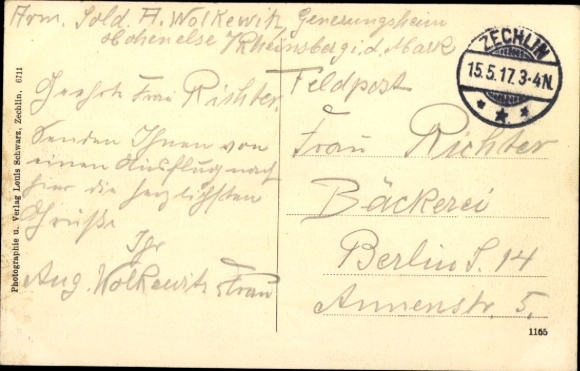 Arm. Sold. A. Wolkewitz, Genesungsheim
Hohenelse / Rheinsberg i. d. Mark
Feldpost
ZECHLIN
15.5.17. 3-4N.
Geehrte Frau Richter.
Senden Ihnen von
einen Ausflug nach
hier die herzlichsten
Grüße
Ihr
Aug. Wolkewitz u. Frau
Frau Richter
Bäckerei
Berlin S. 14
Annenstr. 5.
Photographie u. Verlag Louis Schwarz, Zechlin. 6711
1165